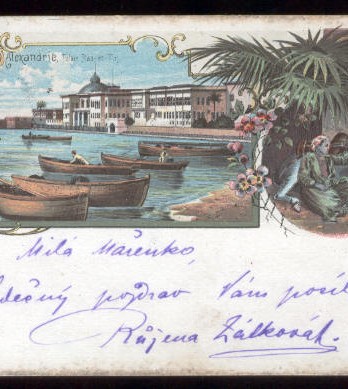 Alexandrie, Palais Ras-el-Tin
Milá Mařenko,
rdečný pozdrav Vám posíl
Růžena Zátková